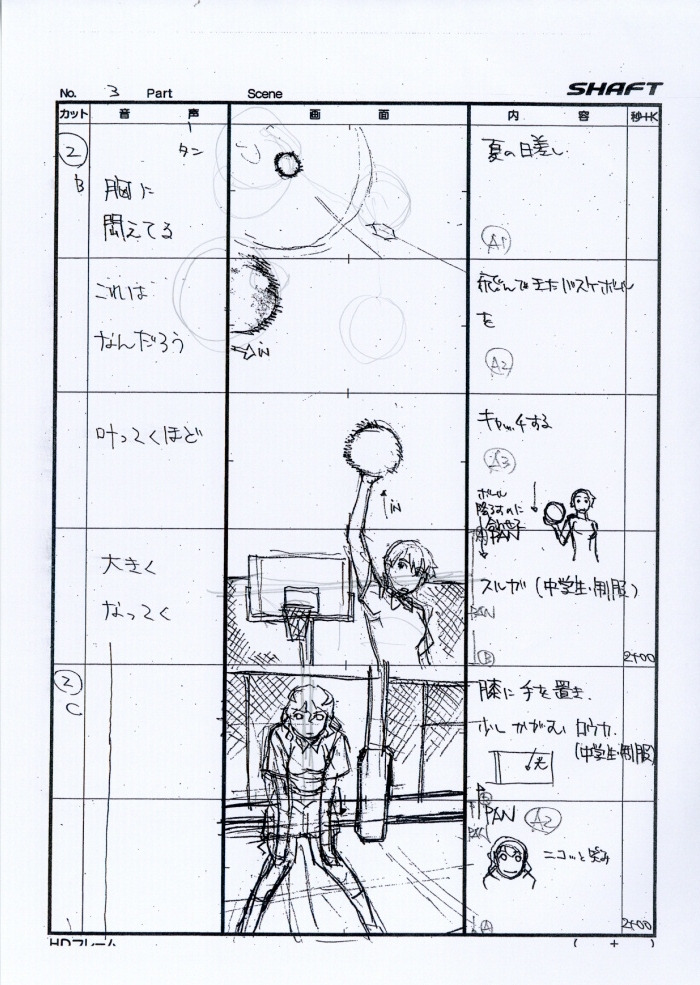 No. 3 Part Scene SHAFT
カット 音 声 画 面 内 容 秒+K
2 B
タン
胸に
悶えてる
夏の日差し
A1
これは
なんだろう
IN
飛んできたバスケボール
を
A2
叶ってくほど
IN
キャッチする
A3
ボール
PAN
大きく
なってく
スルガ(中学生・制服)
PAN
B
2+00
2 C
膝に手を置き、
少しかがむ ロウカ
(中学生・制服)
光
B
PAN A2
PAN
ニコッと笑み
A
2+00
HDフレーム ( + )